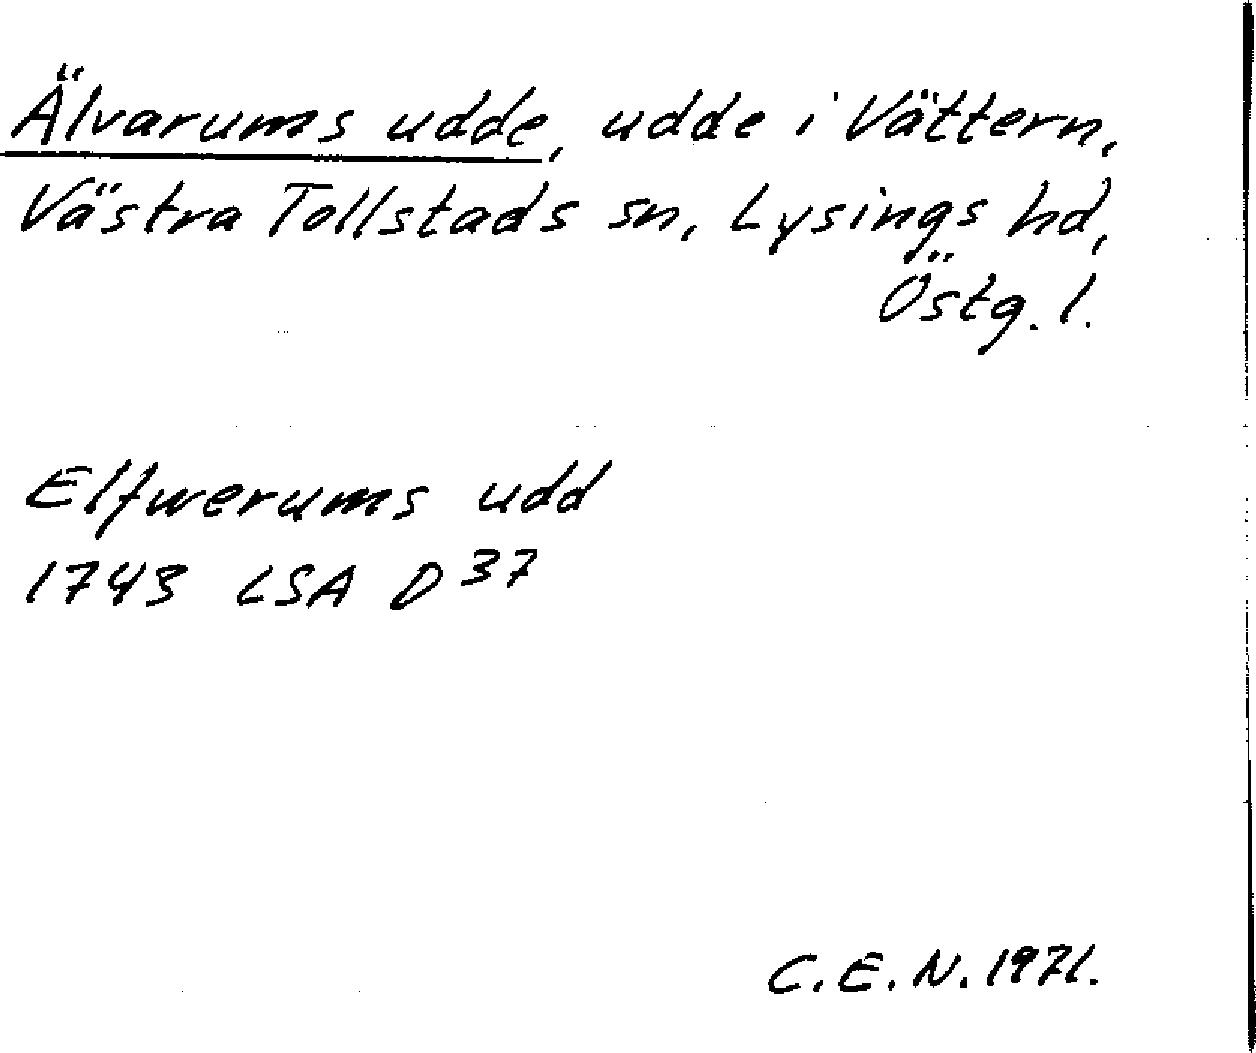 Älvarums udde, udde i Vättern,
Västra Tollstads sn, Lysings hd,
Östg. l.
Elfwerums udd
1743 LSA D 37
C.E.N. 1971.